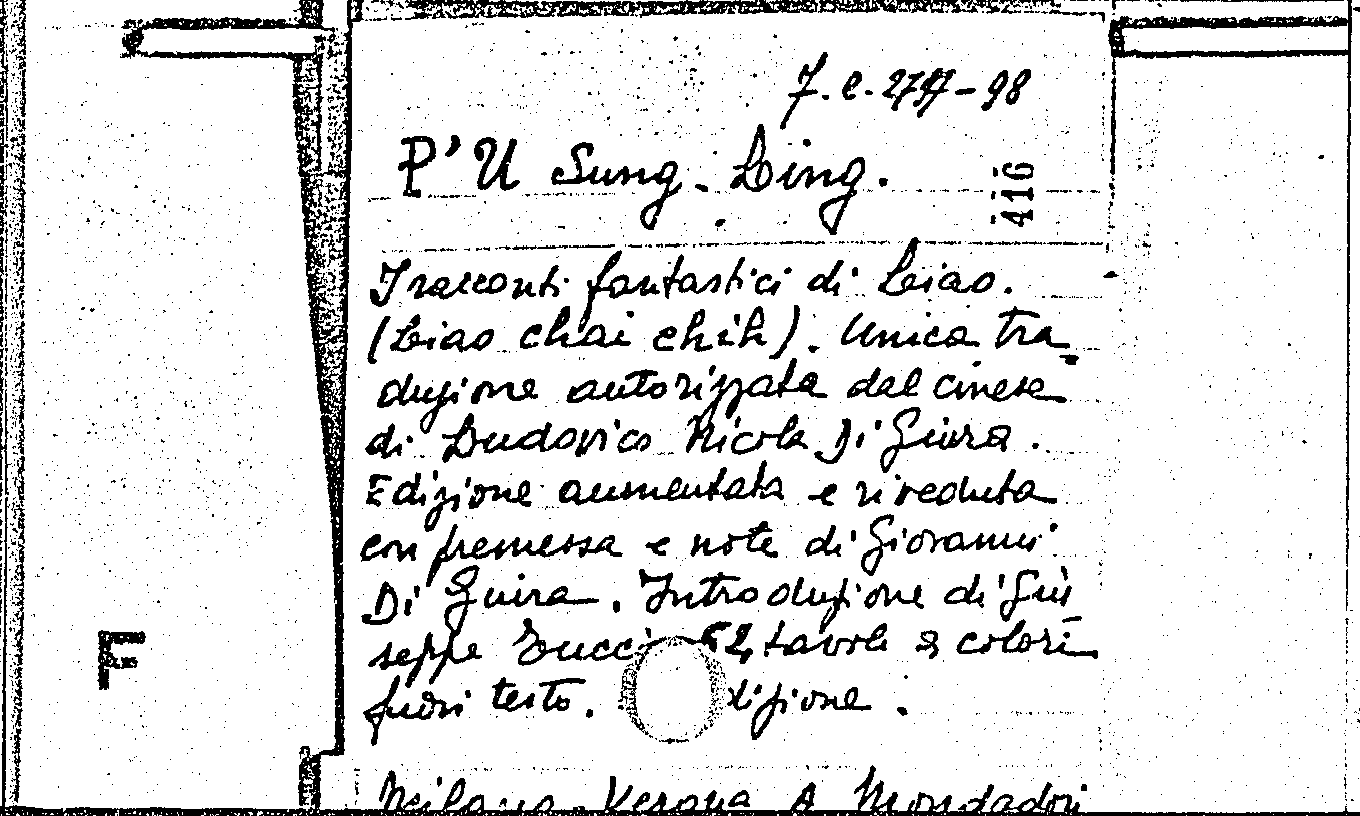 7. e. 2797-98
P'U Sung-Ling.
416
I racconti fantastici di Liao.
(Liao chai chih). Unica tra-
duzione autorizzata dal cinese
di Ludovico Nicola Di Giura.
Edizione aumentata e riveduta
con premessa e note di Giovanni
Di Guira. Introduzione di Giu
seppe Tucci 52 tavole a colori
fuori testo. dizione.
Milano-Verona A. Mondadori
F